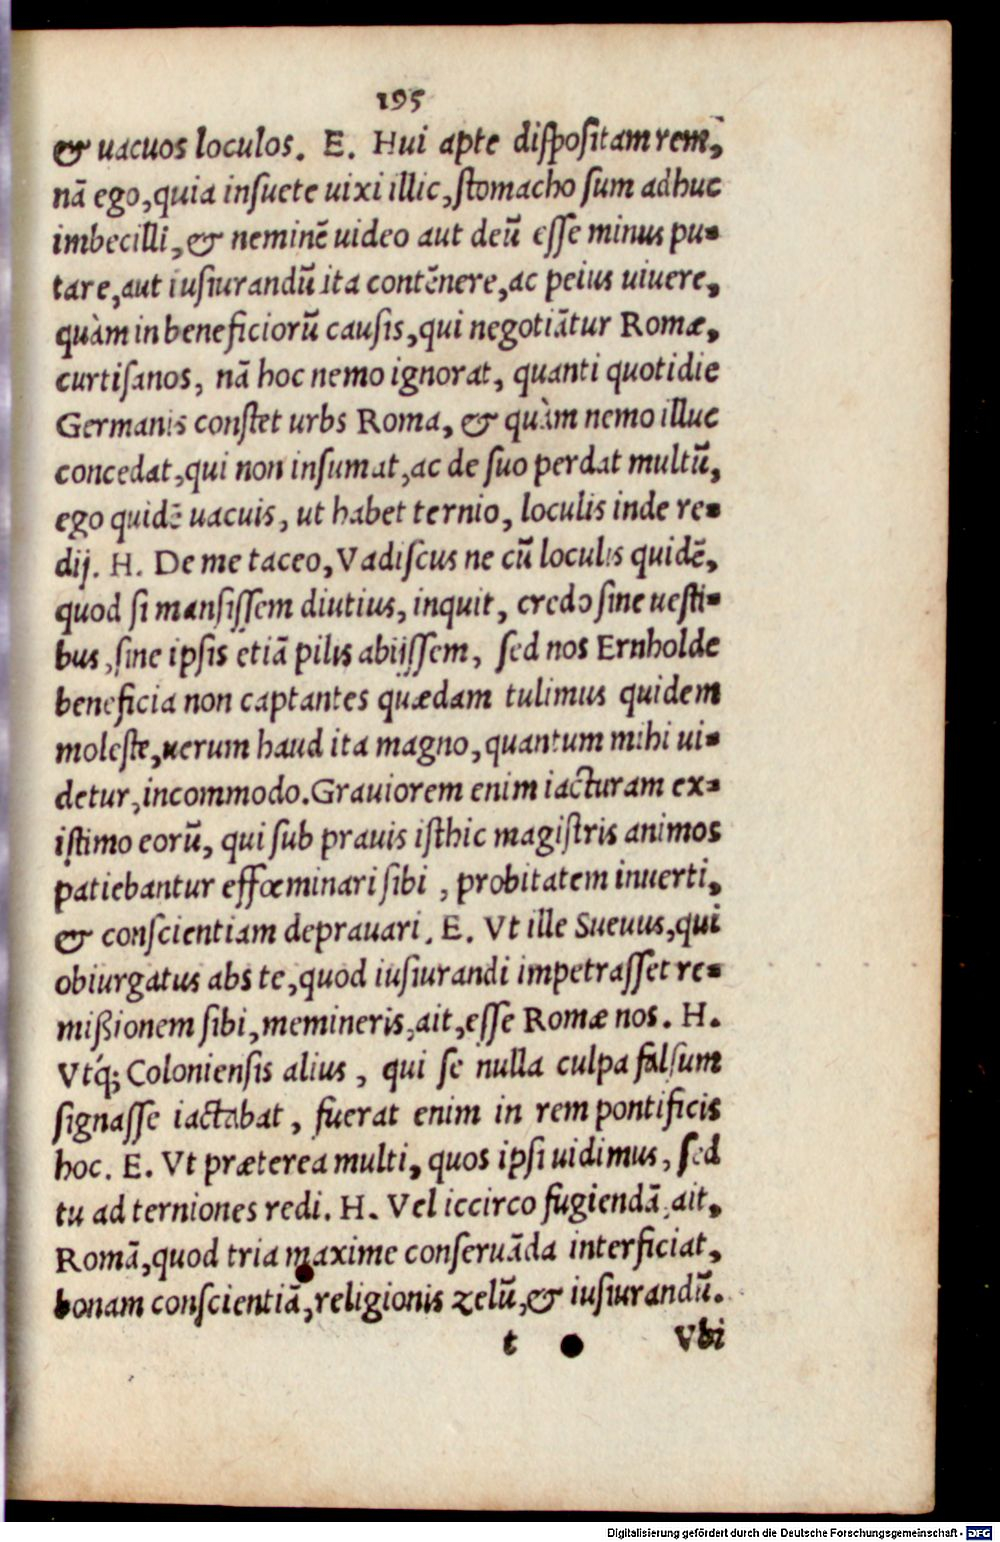 195
& uacuos loculos. E. Hui apte dispositam rem,
nā ego, quia insuete uixi illic, stomacho sum adhuc
imbecilli, & neminē uideo aut deū esse minus pu-
tare, aut iusiurandū ita contēnere, ac peius uiuere,
quàm in beneficiorū causis, qui negotiātur Romæ,
curtisanos, nā hoc nemo ignorat, quanti quotidie
Germanis constet urbs Roma, & quàm nemo illuc
concedat, qui non insumat, ac de suo perdat multū,
ego quidē uacuis, ut habet ternio, loculis inde re-
dij. H. De me taceo, Vadiscus ne cū loculis quidē,
quod si mansissem diutius, inquit, credo sine uesti-
bus, sine ipsis etiā pilis abijssem, sed nos Ernholde
beneficia non captantes quædam tulimus quidem
moleste, uerum haud ita magno, quantum mihi ui-
detur, incommodo. Grauiorem enim iacturam ex-
istimo eorū, qui sub prauis isthic magistris animos
patiebantur effœminari sibi, probitatem inuerti,
& conscientiam deprauari. E. Vt ille Sueuus, qui
obiurgatus abs te, quod iusiurandi impetrasset re-
mißionem sibi, memineris, ait, esse Romæ nos. H.
Vtq́; Coloniensis alius, qui se nulla culpa falsum
signasse iactabat, fuerat enim in rem pontificis
hoc. E. Vt præterea multi, quos ipsi uidimus, sed
tu ad terniones redi. H. Vel iccirco fugiendā, ait,
Romā, quod tria maxime conseruāda interficiat,
bonam conscientiā, religionis zelū, & iusiurandū.
t Vbi
Digitalisierung gefördert durch die Deutsche Forschungsgemeinschaft - DFG